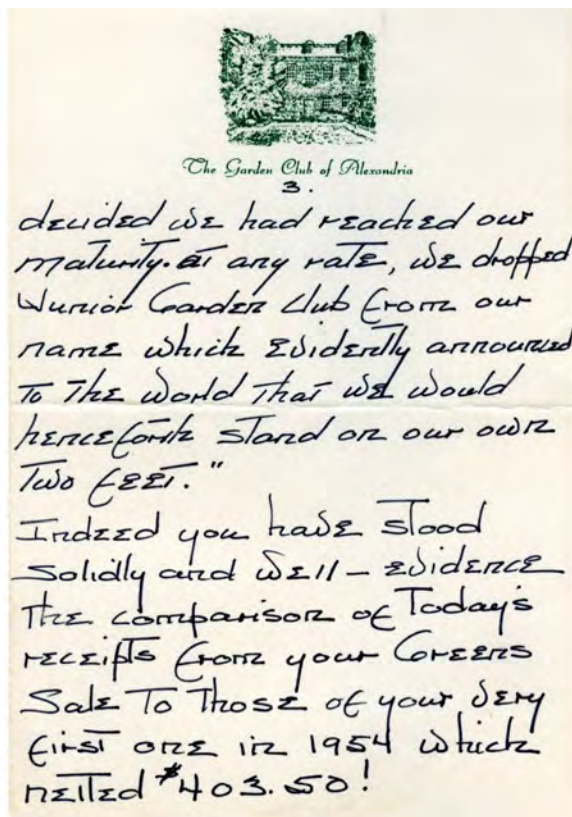 The Garden Club of Alexandria
3.
decided we had reached our
maturity. at any rate, we dropped
Junior Garden Club from our
name which evidently announced
to the world that we would
henceforth stand on our own
two feet."
Indeed you have stood
solidly and well - evidence
the comparison of today's
receipts from your Greens
Sale to those of your very
first one in 1954 which
netted $403.50!